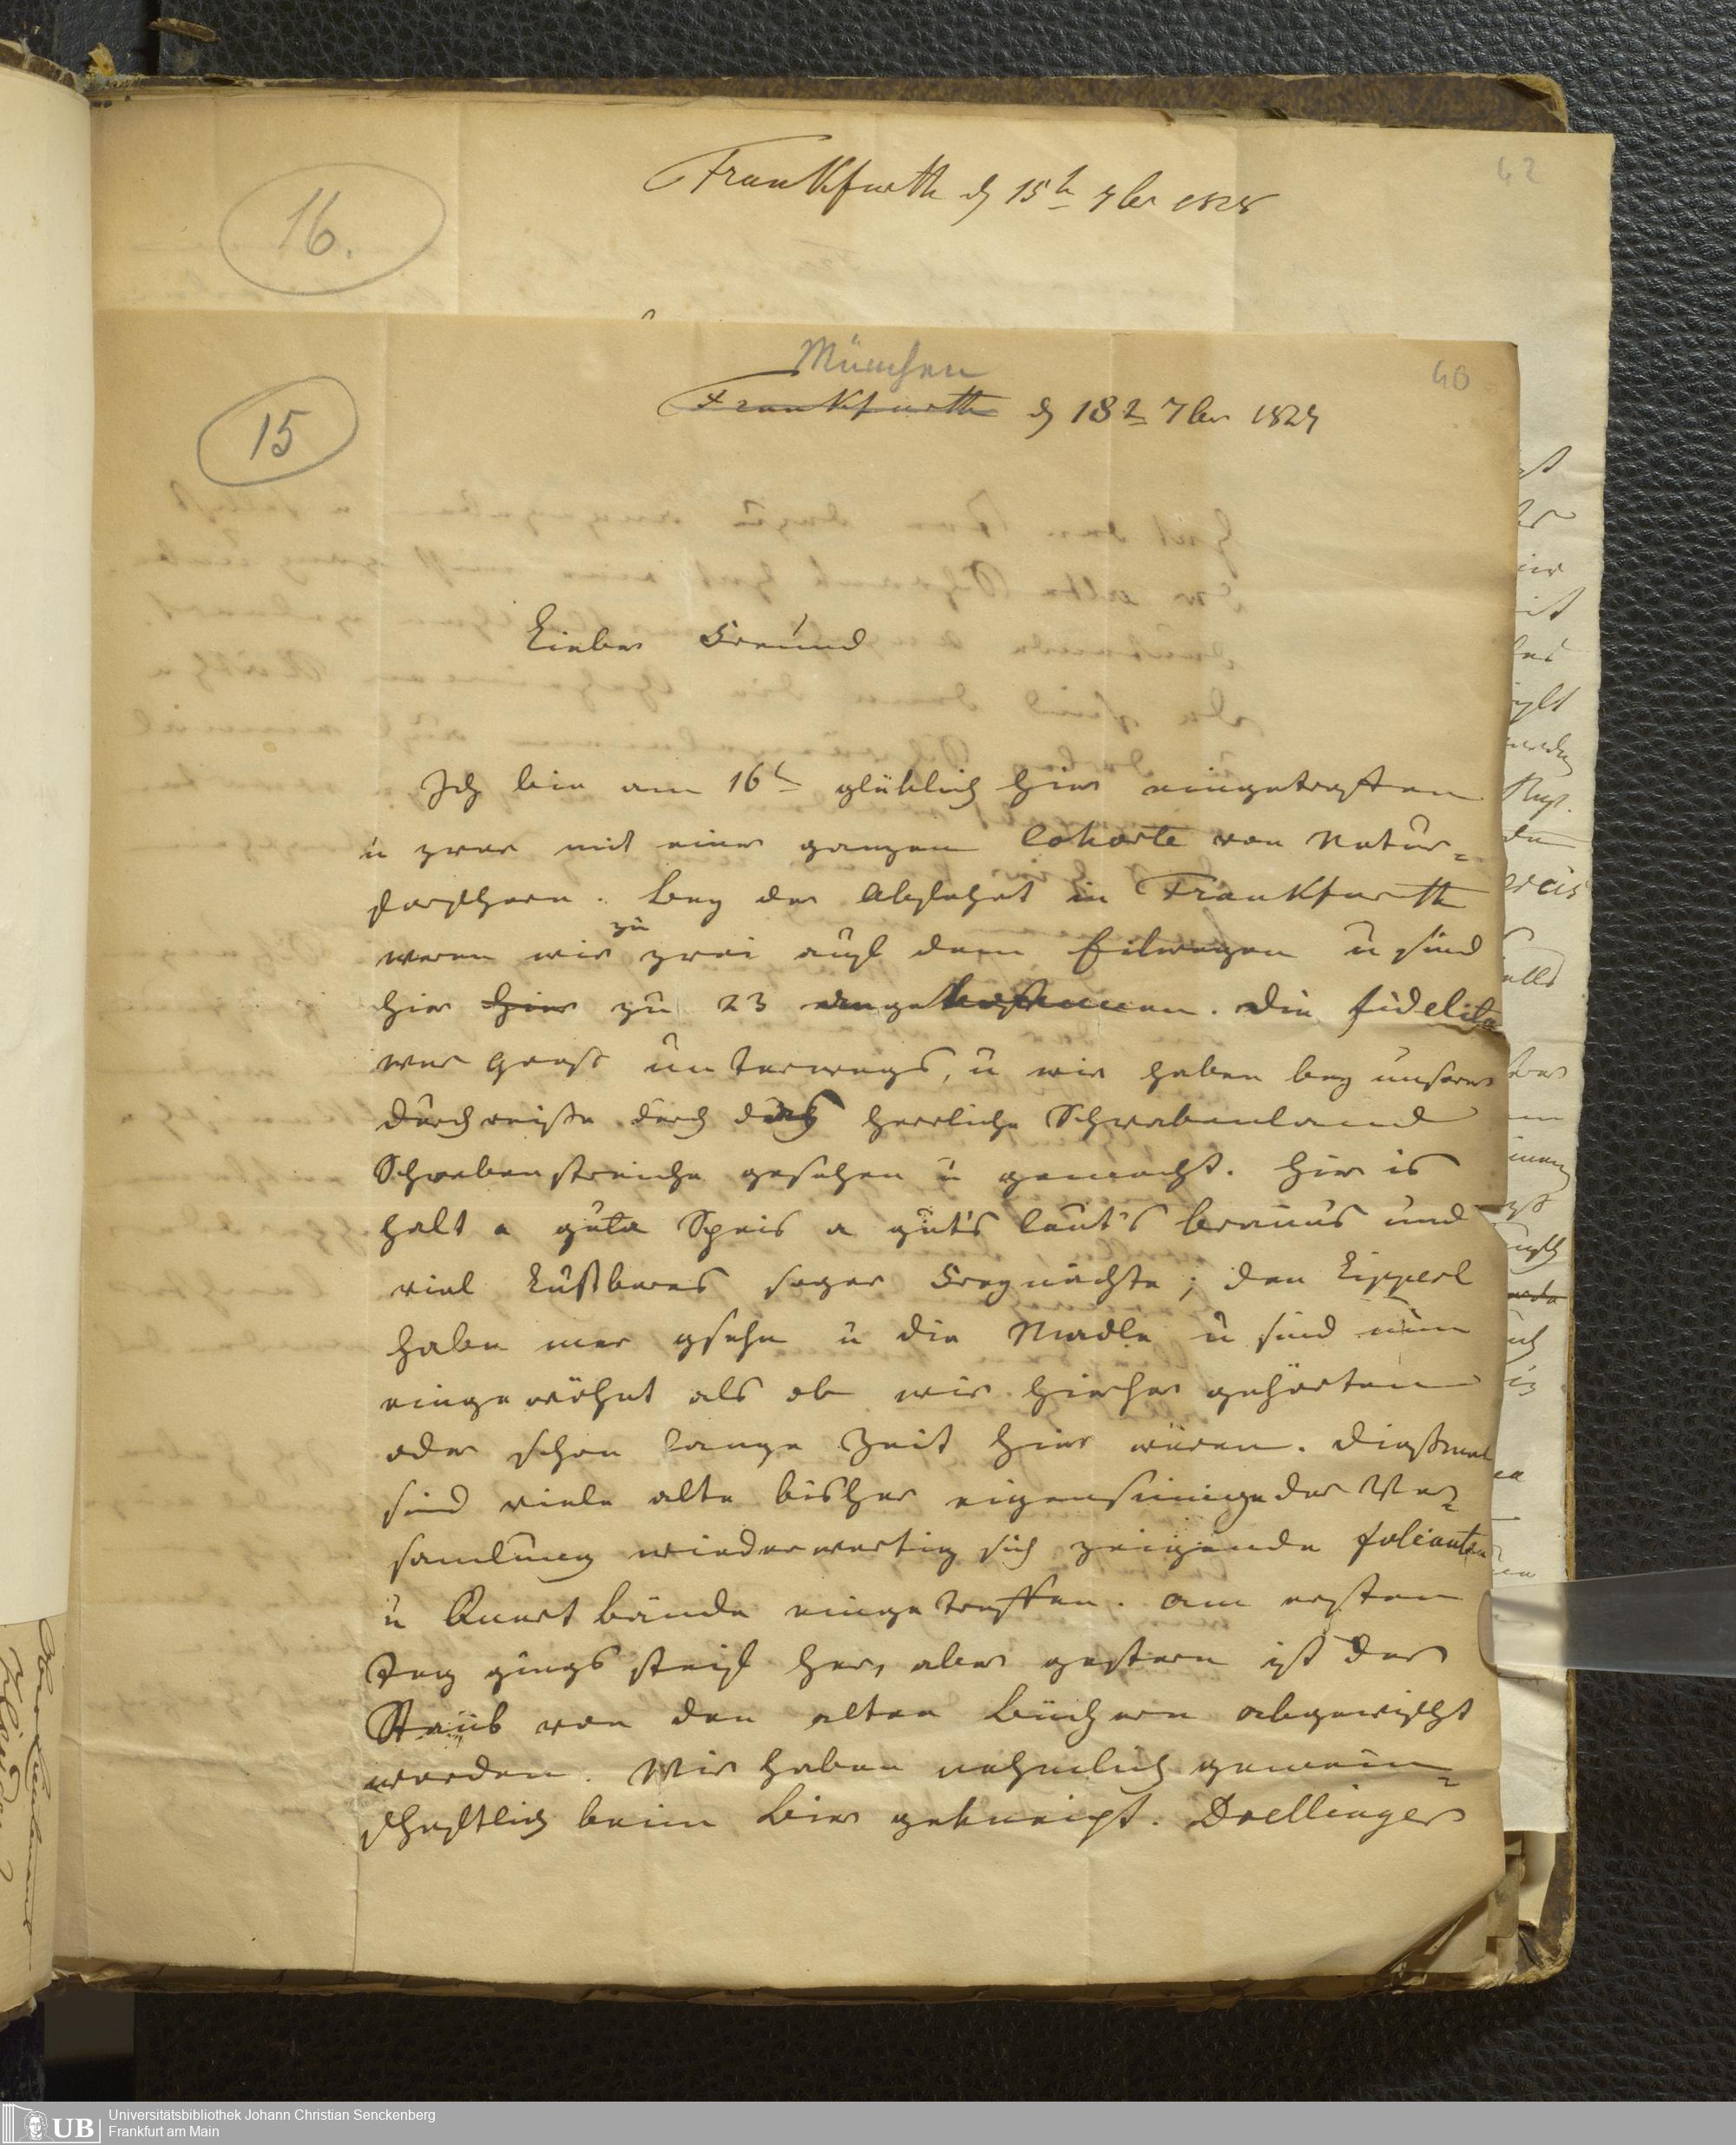 42
16.
Frankfurth d 15t 7ber 1828
40
15
München
Frankfurth d 18t 7ber 1827
Lieber Freund
Ich bin am 16t glüklich hier eingetroffen
u zwar mit einer ganzen Cohorte von Natur-
forschern. Bey der Abfahrt in Frankfurth
waren wir zu zwei auf dem Eilwagen u sind
hier hier zu 23 angekommen. Die fidelita
war gros unterwegs, u wir haben bey unserer
Durchreise durch das herrliche Schwabenland
Schwabenstreiche gesehen u gemacht. Hier is
halt a guta Speis a gut's laut's braun's und
viel Kußbares sogar Freynächte; den Lipperl
haben mer gsehn u die Madle u sind nun
eingewöhnt als ob wir hierher gehörten
oder schon lange Zeit hier wären. Dießmal
sind viele alte bisher eigensinnige der Ver-
samlung wiederwertig sich zeigende folianten
u Quartbände eingetroffen. am ersten
Tag gings steif her, aber gestern ist der
Staub von den alten Büchern abgewischt
worden. Wir haben nehmlich gemein-
schaftlich beim Bier gekneipt. Doellinger
Universitätsbibliothek Johann Christian Senckenberg
Frankfurt am Main
UB